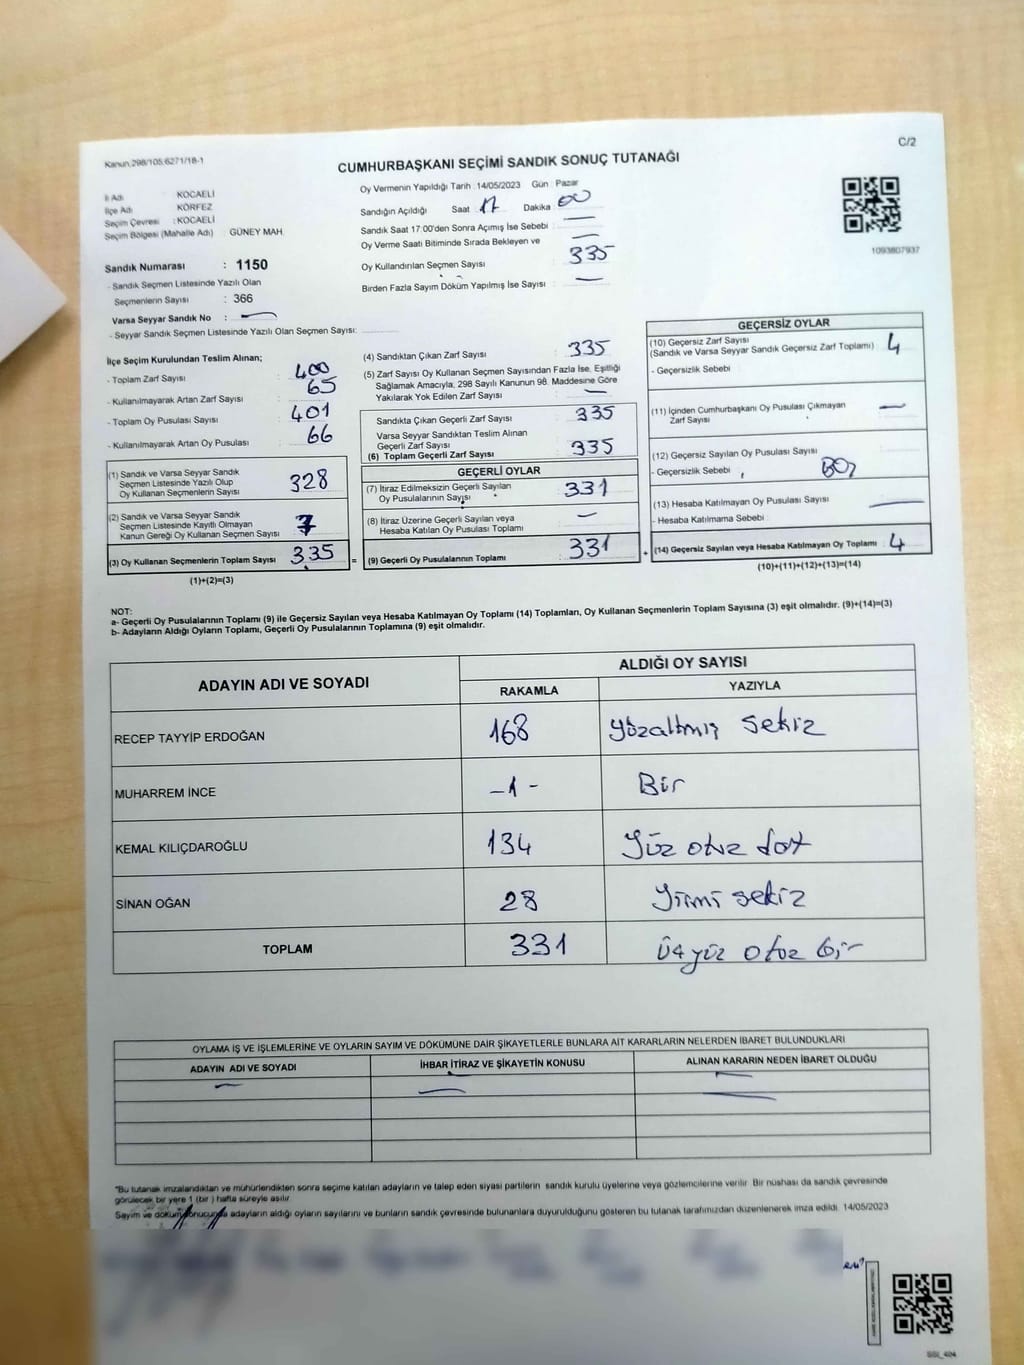 Kanun:298/105;6271/18-1
C/2
CUMHURBAŞKANI SEÇİMİ SANDIK SONUÇ TUTANAĞI
İl Adı KOCAELİ
İlçe Adı KÖRFEZ
Seçim Çevresi : KOCAELİ
Seçim Bölgesi (Mahalle Adı) GÜNEY MAH.
Sandık Numarası : 1150
- Sandık Seçmen Listesinde Yazılı Olan
Seçmenlerin Sayısı : 366
Varsa Seyyar Sandık No : —
- Seyyar Sandık Seçmen Listesinde Yazılı Olan Seçmen Sayısı:
Oy Vermenin Yapıldığı Tarih 14/05/2023 Gün Pazar
Sandığın Açıldığı Saat 17 Dakika 00
Sandık Saat 17:00'den Sonra Açımış İse Sebebi : —
Oy Verme Saati Bitiminde Sırada Bekleyen ve —
Oy Kullandırılan Seçmen Sayısı 335
Birden Fazla Sayım Döküm Yapılmış İse Sayısı : —
1093807937
İlçe Seçim Kurulundan Teslim Alınan;
- Toplam Zarf Sayısı : 400
- Kullanılmayarak Artan Zarf Sayısı : 65
- Toplam Oy Pusulası Sayısı : 401
- Kullanılmayarak Artan Oy Pusulası : 66
(1) Sandık ve Varsa Seyyar Sandık
Seçmen Listesinde Yazılı Olup
Oy Kullanan Seçmenlerin Sayısı 328
(2) Sandık ve Varsa Seyyar Sandık
Seçmen Listesinde Kayıtlı Olmayan
Kanun Gereği Oy Kullanan Seçmen Sayısı 7
(3) Oy Kullanan Seçmenlerin Toplam Sayısı 335
(1)+(2)=(3)
(4) Sandıktan Çıkan Zarf Sayısı : 335
(5) Zarf Sayısı Oy Kullanan Seçmen Sayısından Fazla İse, Eşitliği
Sağlamak Amacıyla, 298 Sayılı Kanunun 98. Maddesine Göre
Yakılarak Yok Edilen Zarf Sayısı : —
Sandıkta Çıkan Geçerli Zarf Sayısı : 335
Varsa Seyyar Sandıktan Teslim Alınan
Geçerli Zarf Sayısı
(6) Toplam Geçerli Zarf Sayısı : 335
GEÇERLİ OYLAR
(7) İtiraz Edilmeksizin Geçerli Sayılan
Oy Pusulalarının Sayısı : 331
(8) İtiraz Üzerine Geçerli Sayılan veya
Hesaba Katılan Oy Pusulası Toplamı : —
= (9) Geçerli Oy Pusulalarının Toplamı : 331
GEÇERSİZ OYLAR
(10) Geçersiz Zarf Sayısı
(Sandık ve Varsa Seyyar Sandık Geçersiz Zarf Toplamı) : 4
- Geçersizlik Sebebi
(11) İçinden Cumhurbaşkanı Oy Pusulası Çıkmayan
Zarf Sayısı : —
(12) Geçersiz Sayılan Oy Pusulası Sayısı
- Geçersizlik Sebebi Boş
(13) Hesaba Katılmayan Oy Pusulası Sayısı —
- Hesaba Katılmama Sebebi
+ (14) Geçersiz Sayılan veya Hesaba Katılmayan Oy Toplamı : 4
(10)+(11)+(12)+(13)=(14)
NOT:
a- Geçerli Oy Pusulalarının Toplamı (9) ile Geçersiz Sayılan veya Hesaba Katılmayan Oy Toplamı (14) Toplamları, Oy Kullanan Seçmenlerin Toplam Sayısına (3) eşit olmalıdır. (9)+(14)=(3)
b- Adayların Aldığı Oyların Toplamı, Geçerli Oy Pusulalarının Toplamına (9) eşit olmalıdır.
ADAYIN ADI VE SOYADI ALDIĞI OY SAYISI
RAKAMLA YAZIYLA
RECEP TAYYİP ERDOĞAN 168 yüzaltmış sekiz
MUHARREM İNCE -1- Bir
KEMAL KILIÇDAROĞLU 134 Yüz otuz dört
SİNAN OĞAN 28 Yirmi sekiz
TOPLAM 331 üçyüz otuz bir
OYLAMA İŞ VE İŞLEMLERİNE VE OYLARIN SAYIM VE DÖKÜMÜNE DAİR ŞİKAYETLERLE BUNLARA AİT KARARLARIN NELERDEN İBARET BULUNDUKLARI
ADAYIN ADI VE SOYADI İHBAR İTİRAZ VE ŞİKAYETİN KONUSU ALINAN KARARIN NEDEN İBARET OLDUĞU
— — —
"Bu tutanak imzalandıktan ve mühürlendikten sonra seçime katılan adayların ve talep eden siyasi partilerin sandık kurulu üyelerine veya gözlemcilerine verilir. Bir nüshası da sandık çevresinde
görülecek bir yere 1 (bir) hafta süreyle asılır.
Sayım ve döküm sonucunda adayların aldığı oyların sayılarını ve bunların sandık çevresinde bulunanlara duyurulduğunu gösteren bu tutanak tarafımızdan düzenlenerek imza edildi. 14/05/2023